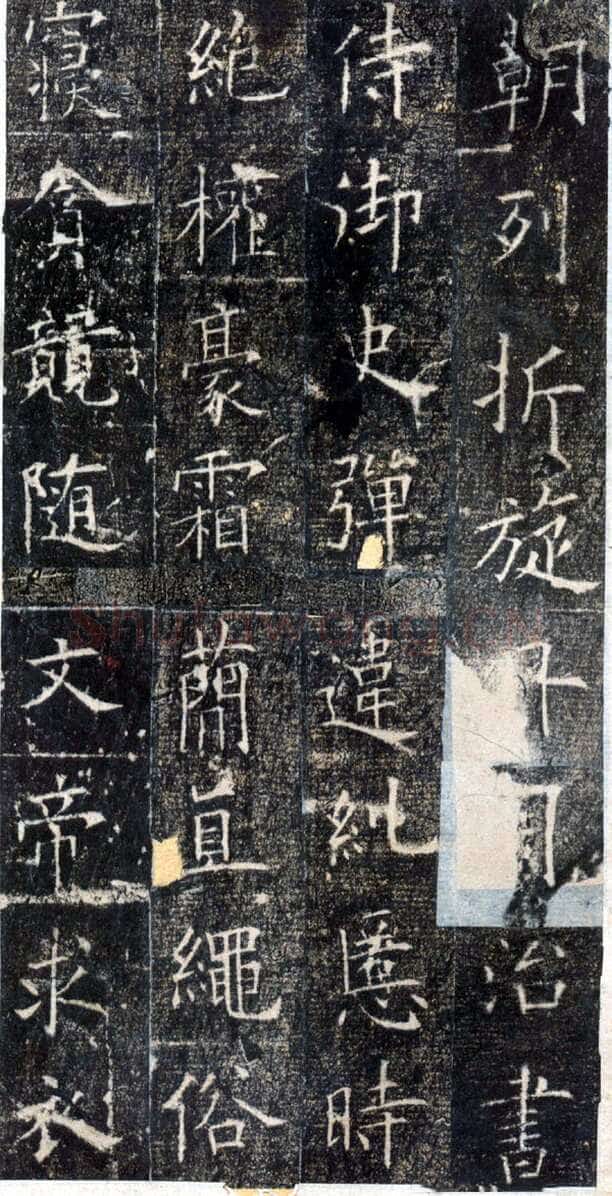 朝列折旋治書
侍御史彈違糺慝時
絶權豪霜蕳直繩俗
寢貪競随文帝求衣